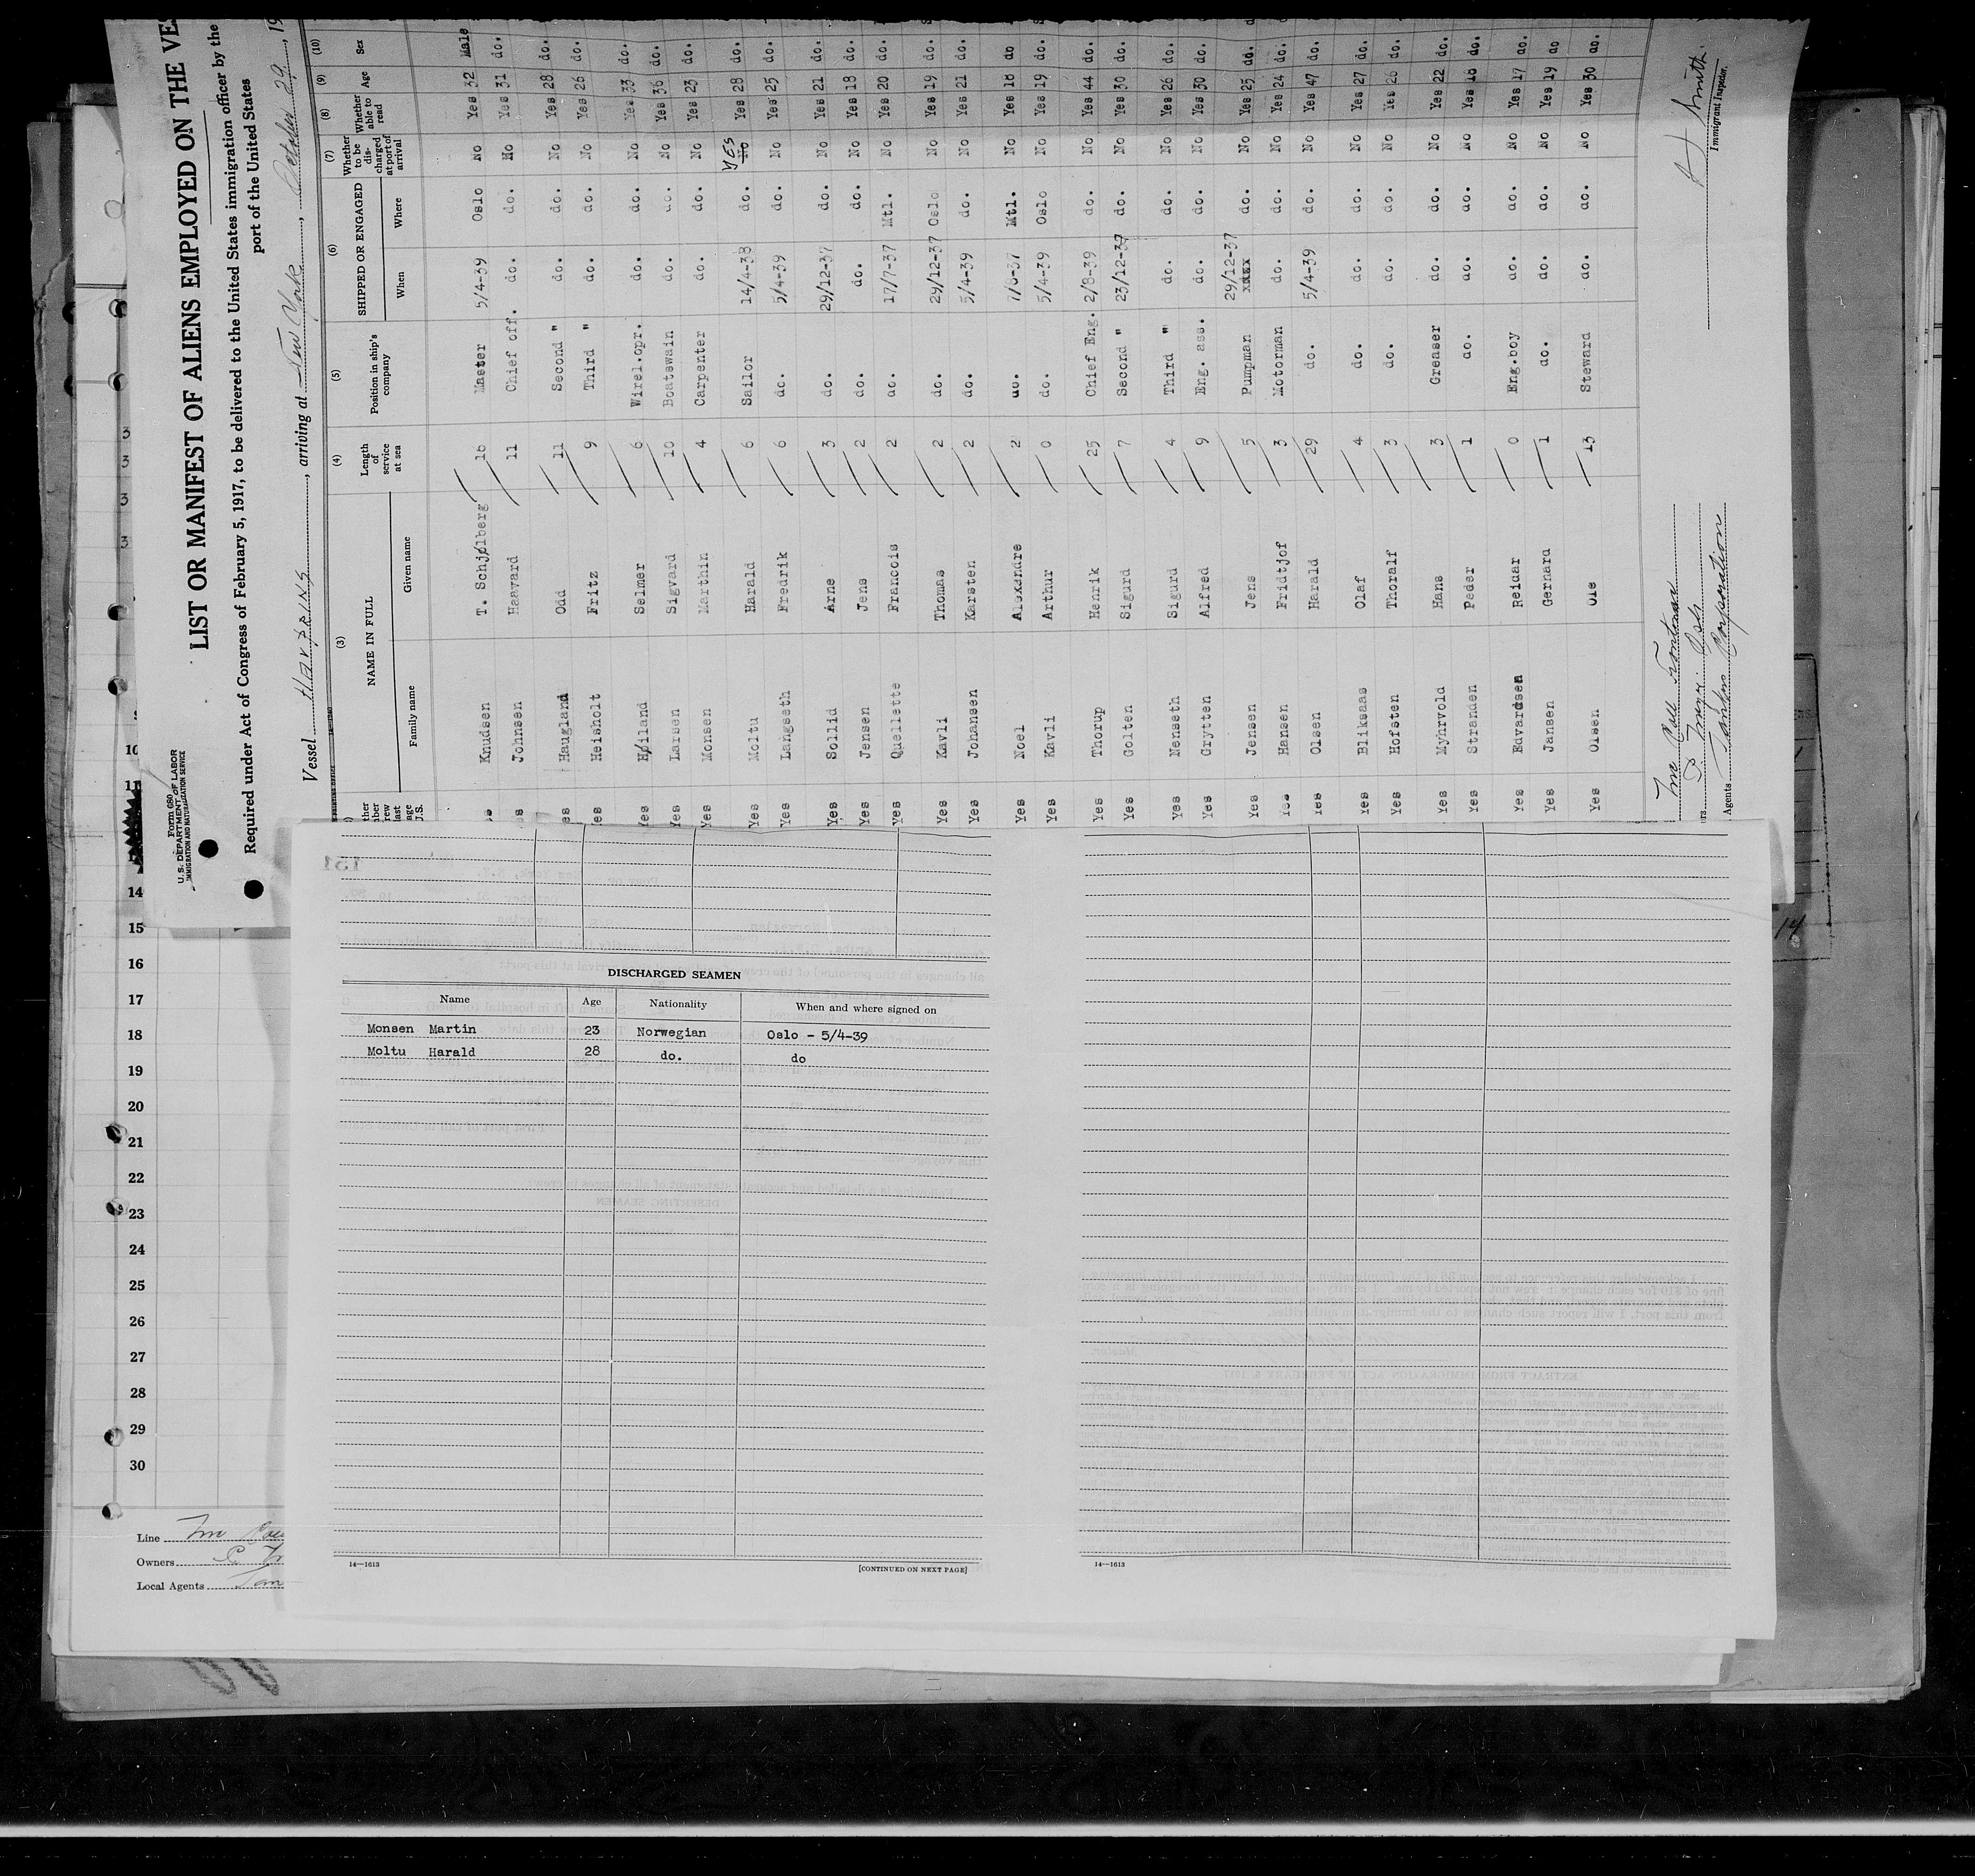 Form 680
U.S. DEPARTMENT OF LABOR
IMMIGRATION AND NATURALIZATION SERVICE
LIST OR MANIFEST OF ALIENS EMPLOYED ON THE VES
Required under Act of Congress of February 5, 1917, to be delivered to the United States immigration officer by the
port of the United States
Vessel HAVPRINS, arriving at New York, October 29, 19
(3) (4) (5) (6) (7) (8) (9) (10)
NAME IN FULL Length of service at sea Position in ship's company SHIPPED OR ENGAGED Whether to be discharged at port of arrival Whether able to read Age Sex
Family name Given name When Where
Knudsen T. Schjølberg 16 Master 5/4-39 Oslo No Yes 32 Male
Yes Johnsen Haavard 11 Chief off. do. do. No Yes 31 do.
Yes Haugland Odd 11 Second " do. do. No Yes 28 do.
Yes Heisholt Fritz 9 Third " do. do. No Yes 26 do.
Yes Høiland Selmer 6 Wirel.opr. do. do. No Yes 33 do.
Yes Larsen Sigvard 10 Boatswain do. do. No Yes 36 do.
Yes Monsen Marthin 4 Carpenter do. do. No Yes 23 do.
Yes Moltu Harald 6 Sailor 14/4-38 do. YES No Yes 28 do.
Yes Langseth Fredrik 6 do. 5/4-39 do. No Yes 25 do.
Yes Sollid Arne 3 do. 29/12-37 do. No Yes 21 do.
Yes Jensen Jens 2 do. do. do. No Yes 18 do.
Yes Quellette Francois 2 do. 17/7-37 Mtl. No Yes 20 do.
Yes Kavli Thomas 2 do. 29/12-37 Oslo No Yes 19 do.
Yes Johansen Karsten 2 do. 5/4-39 do. No Yes 21 do.
Yes Noel Alexandre 2 do. 7/8-37 Mtl. No Yes 18 do
Yes Kavli Arthur 0 do. 5/4-39 Oslo No Yes 19 do.
Yes Thorup Henrik 25 Chief Eng. 2/8-39 do. No Yes 44 do.
Yes Golten Sigurd 7 Second " 23/12-37 do. No Yes 30 do.
Yes Nenseth Sigurd 4 Third " do. do. No Yes 26 do.
Yes Grytten Alfred 9 Eng. ass. do. do. No Yes 30 do.
Yes Jensen Jens 5 Pumpman 29/12-37 do. No Yes 25 do.
Yes Hansen Fridtjof 3 Motorman do. do. No Yes 24 do.
Yes Olsen Harald 29 do. 5/4-39 do. No Yes 47 do.
Yes Bliksaas Olaf 4 do. do. do. No Yes 27 do.
Yes Hofsten Thoralf 3 do. do. do. No Yes 26 do.
Yes Myhrvold Hans 3 Greaser do. do. No Yes 22 do.
Yes Stranden Peder 1 do. do. do. No Yes 18 do.
Yes Edvardsen Reidar 0 Eng.boy do. do. No Yes 17 do.
Yes Jansen Gernard 1 do. do. do. No Yes 19 do
Yes Olsen Ole 13 Steward do. do. No Yes 30 do.
Agents Corporation
Smith.
Immigrant Inspector.
DISCHARGED SEAMEN
Name Age Nationality When and where signed on
Monsen Martin 23 Norwegian Oslo - 5/4-39
Moltu Harald 28 do. do
14—1613
[CONTINUED ON NEXT PAGE]
14—1613
10
11
14
15
16
17
18
19
20
21
22
23
24
25
26
27
28
29
30
Line
Owners
Local Agents
14